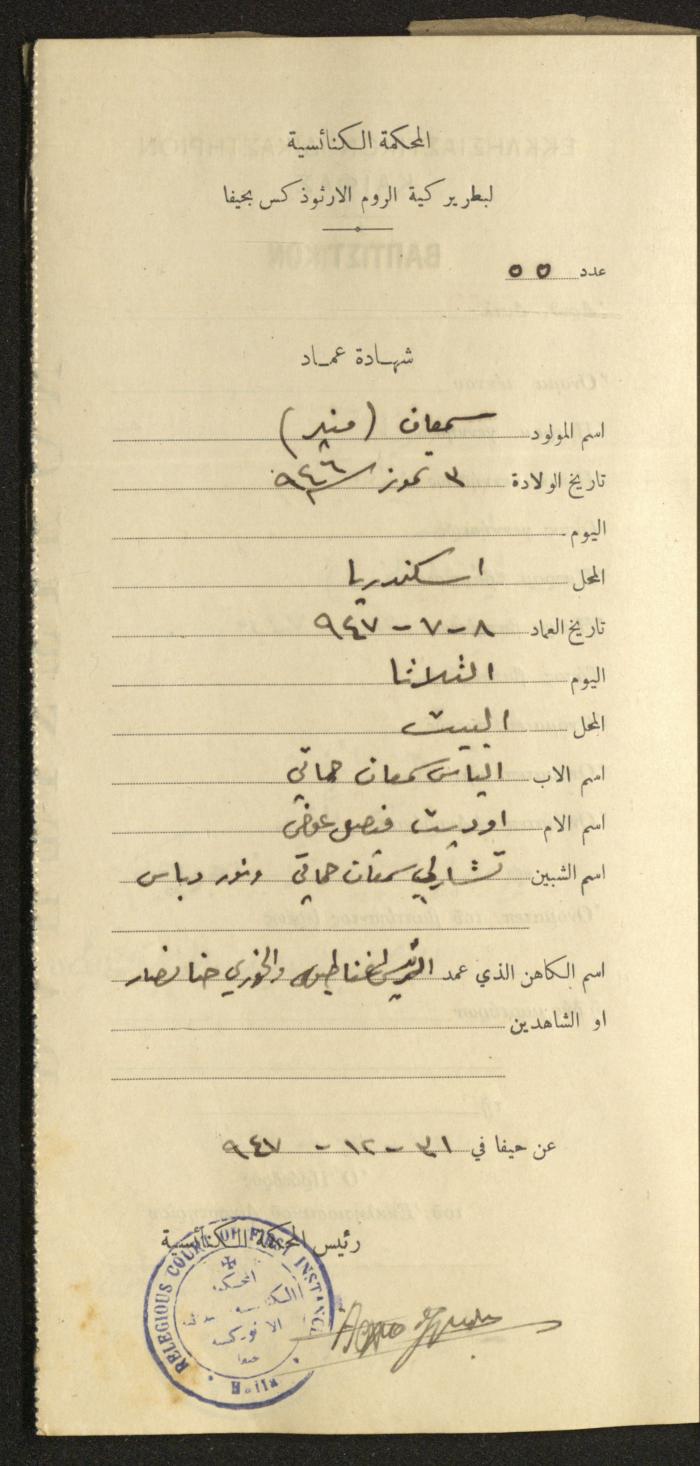 المحكمة الكنائسية
لبطريركية الروم الارثوذكس بحيفا
عدد ٥٥
شهادة عماد
اسم المولود سمعان (منير)
تاريخ الولادة ٣ تموز سنة ٩٤٦
اليوم
المحل اسكندريا
تاريخ العماد ٨-٧-٩٤٧
اليوم الثلاثا
المحل البيت
اسم الاب الياس سمعان حماتي
اسم الام اوديت فيصل عوض
اسم الشبين تشارلي سمعان حماتي ونور دباس
اسم الكاهن الذي عمد الرئيس اغناطيوس والخوري حنا نصار
او الشاهدين
عن حيفا في ٣١-١٢-٩٤٧
رئيس المحكمة الكنائسية
RELEGIOUS COURT OF FIRST INSTANCE
المحكمة
حيفا
Haifa